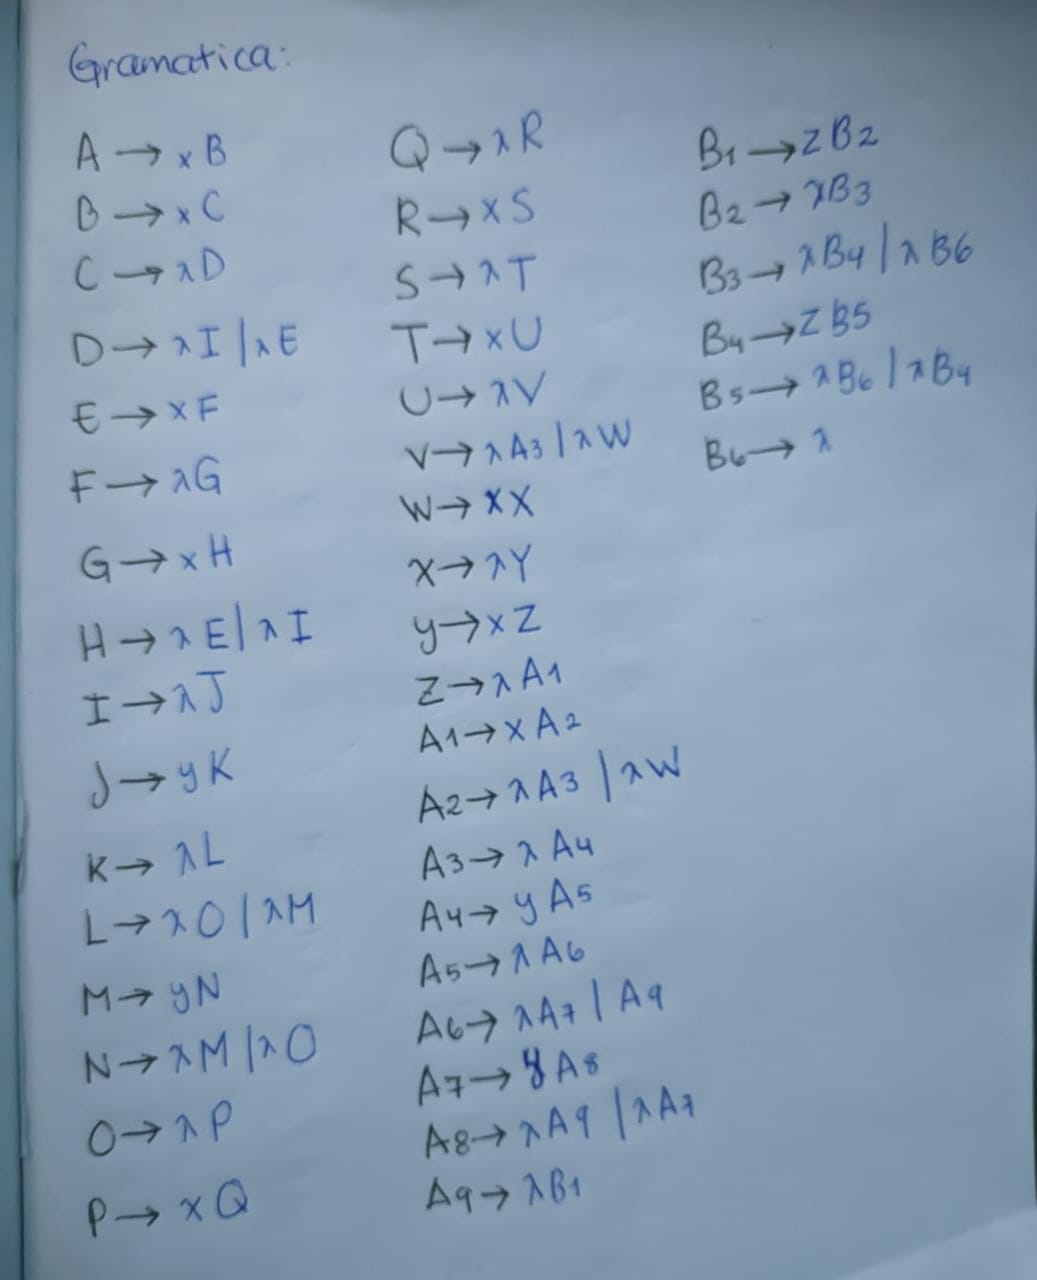 Gramatica:
A → xB
B → xC
C → λD
D → λI | λE
E → xF
F → λG
G → xH
H → λE | λI
I → λJ
J → yK
K → λL
L → λO | λM
M → yN
N → λM | λO
O → λP
P → xQ
Q → λR
R → xS
S → λT
T → xU
U → λV
V → λA3 | λW
W → xX
X → λY
y → xZ
Z → λA1
A1 → xA2
A2 → λA3 | λW
A3 → λA4
A4 → yA5
A5 → λA6
A6 → λA7 | A9
A7 → yA8
A8 → λA9 | λA7
A9 → λB1
B1 → zB2
B2 → λB3
B3 → λB4 | λB6
B4 → zB5
B5 → λB6 | λB4
B6 → λ